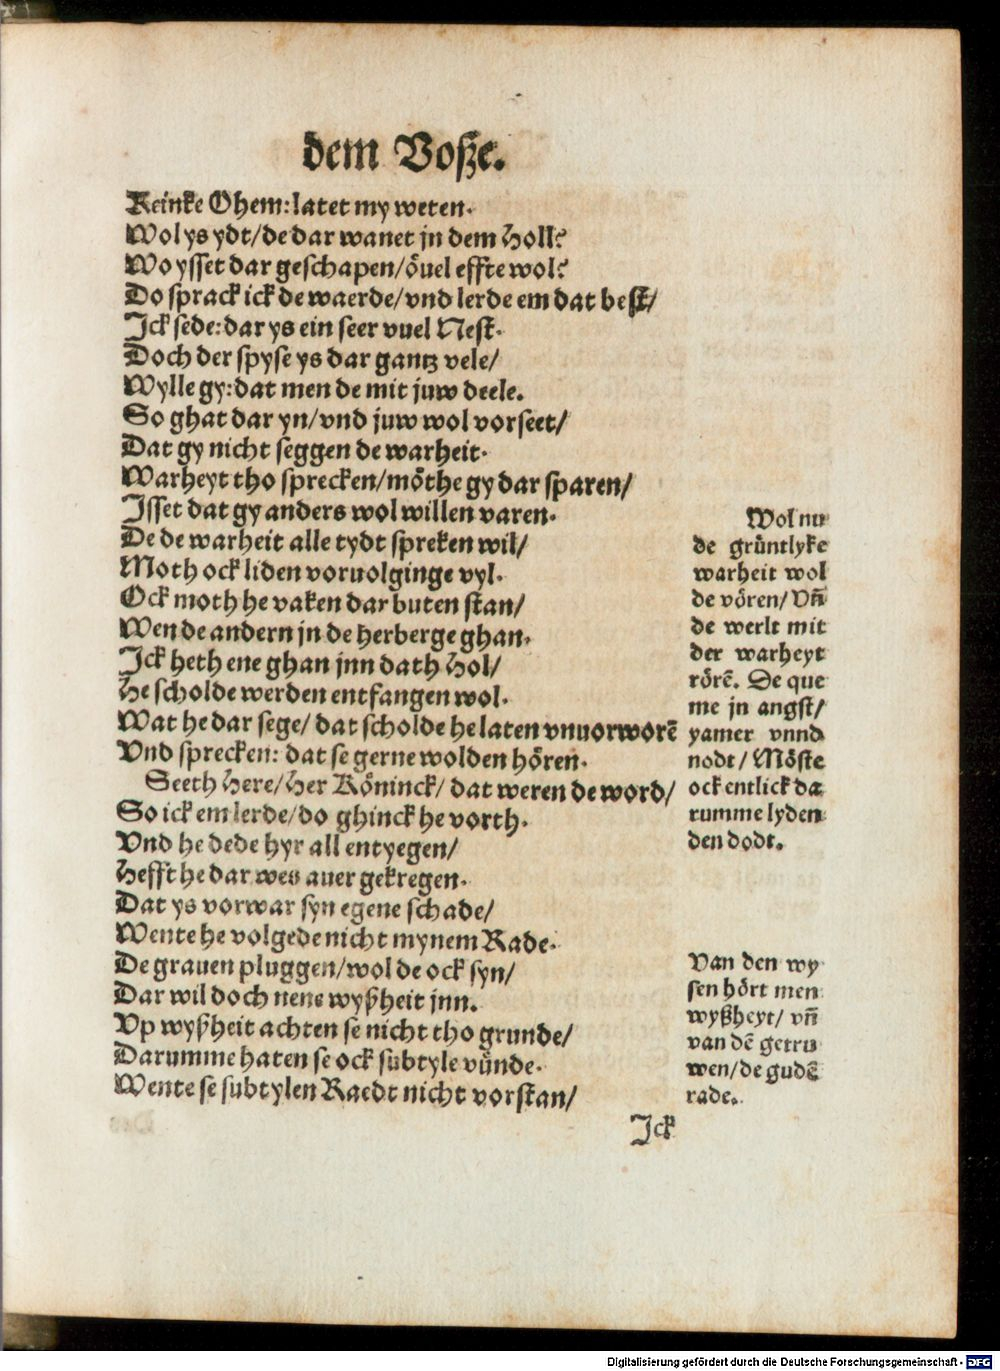 dem Voſze.
Reinke Ohem: latet my weten.
Wol ys ydt/ de dar wanet jn dem Holl?
Wo ysſet dar geſchapen/ oͤuel effte wol?
Do ſprack ick de waerde/ vnd lerde em dat beſt/
Jck ſede: dar ys ein ſeer vuel Neſt.
Doch der ſpyſe ys dar gantz vele/
Wylle gy: dat men de mit juw deele.
So ghat dar yn/ vnd juw wol vorſeet/
Dat gy nicht ſeggen de warheit.
Warheyt tho ſprecken/ moͤthe gy dar ſparen/
Jſſet dat gy anders wol willen varen.
De de warheit alle tydt ſpreken wil/
Moth ock liden voruolginge vyl.
Ock moth he vaken dar buten ſtan/
Wen de andern jn de herberge ghan.
Jck heth ene ghan jnn dath Hol/
He ſcholde werden entfangen wol.
Wat he dar ſege/ dat ſcholde he laten vnuorworē
Vnd ſprecken: dat ſe gerne wolden hoͤren.
Seeth Here/ Her Koͤninck/ dat weren de word/
So ick em lerde/ do ghinck he vorth.
Vnd he dede hyr all entyegen/
Hefft he dar wes auer gekregen.
Dat ys vorwar ſyn egene ſchade/
Wente he volgede nicht mynem Rade.
De grauen pluggen/ wol de ock ſyn/
Dar wil doch nene wyßheit jnn.
Vp wyßheit achten ſe nicht tho grunde/
Darumme haten ſe ock ſubtyle vuͤnde.
Wente ſe ſubtylen Raedt nicht vorſtan/
Jck
Wol nu
de gruͤntlyke
warheit wol
de voͤren/ Vñ
de werlt mit
der warheyt
roͤrē. De que
me jn angſt/
yamer vnnd
nodt/ Moͤſte
ock entlick da
rumme lyden
den dodt.
Van den wy
ſen hoͤrt men
wyßheyt/ vñ
van dē getru
wen/ de gudē
rade.
Digitalisierung gefördert durch die Deutsche Forschungsgemeinschaft - DFG